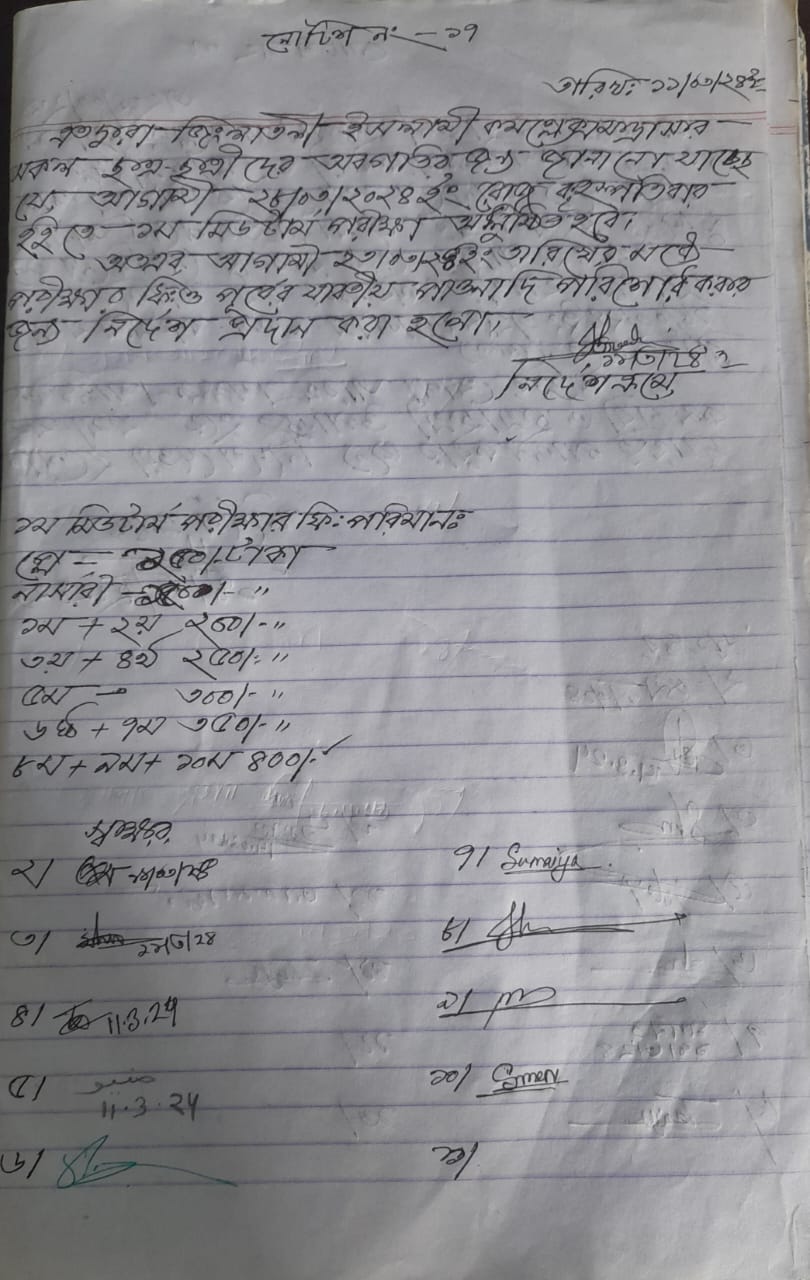 নোটিশ নং - ১৭
তারিখ: ১১/০৩/২৪ইং
এতদ্বারা ইসলামী কমপ্লেক্স মাদ্রাসার
সকল ছাত্র-ছাত্রীদের অবগতির জন্য জানানো যাচ্ছে
যে, আগামী ২৮/০৩/২০২৪ইং রোজ বৃহস্পতিবার
হইতে ১ম মিডটার্ম পরীক্ষা অনুষ্ঠিত হবে।
অতএব আগামী ২৩/০৩/২৪ইং তারিখের মধ্যে
পরীক্ষার ফি:ও পূর্বের যাবতীয় পাওনাদি পরিশোধ করার
জন্য নির্দেশ প্রদান করা হলো।
নির্দেশক্রমে
১ম মিডটার্ম পরীক্ষার ফি: পরিমান:
প্লে - ২৫০/- টাকা
নার্সারী - /- "
১ম + ২য় ২৫০/- "
৩য় + ৪র্থ ২৫০/- "
৫ম - ৩০০/- "
৬ষ্ঠ + ৭ম ৩৫০/- "
৮ম + ৯ম + ১০ম ৪০০/-
স্বাক্ষর
২।
৭। Sumaiya
৩।
৮।
৪। 11.3.24
৯।
৫। 11.3.24
১০।
৬।
১১।